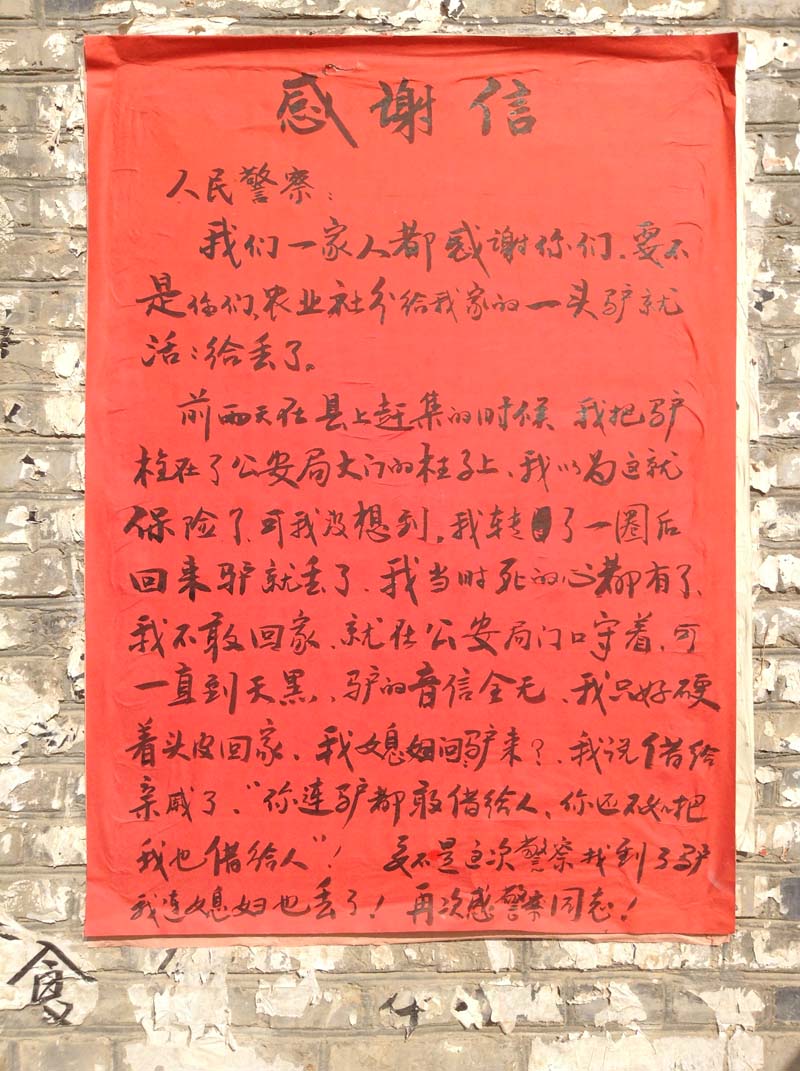 感谢信
人民警察：
我们一家人都感谢你们、要不
是你们、农业社分给我家的一头驴就
活：给丢了。
前两天在县上赶集的时候 我把驴
栓在了公安局大门的柱子上、我以为这就
保险了、可我没想到。我转了一圈后
回来驴就丢了、我当时死的心都有了、
我不敢回家、就在公安局门口守着、可
一直到天黑、驴的音信全无、我只好硬
着头皮回家、我媳妇问驴来？、我说借给
亲戚了、“你连驴都敢借给人、你还不如把
我也借给人”！ 要不是这次警察找到了驴
我连媳妇也丢了！再次感警察同志！